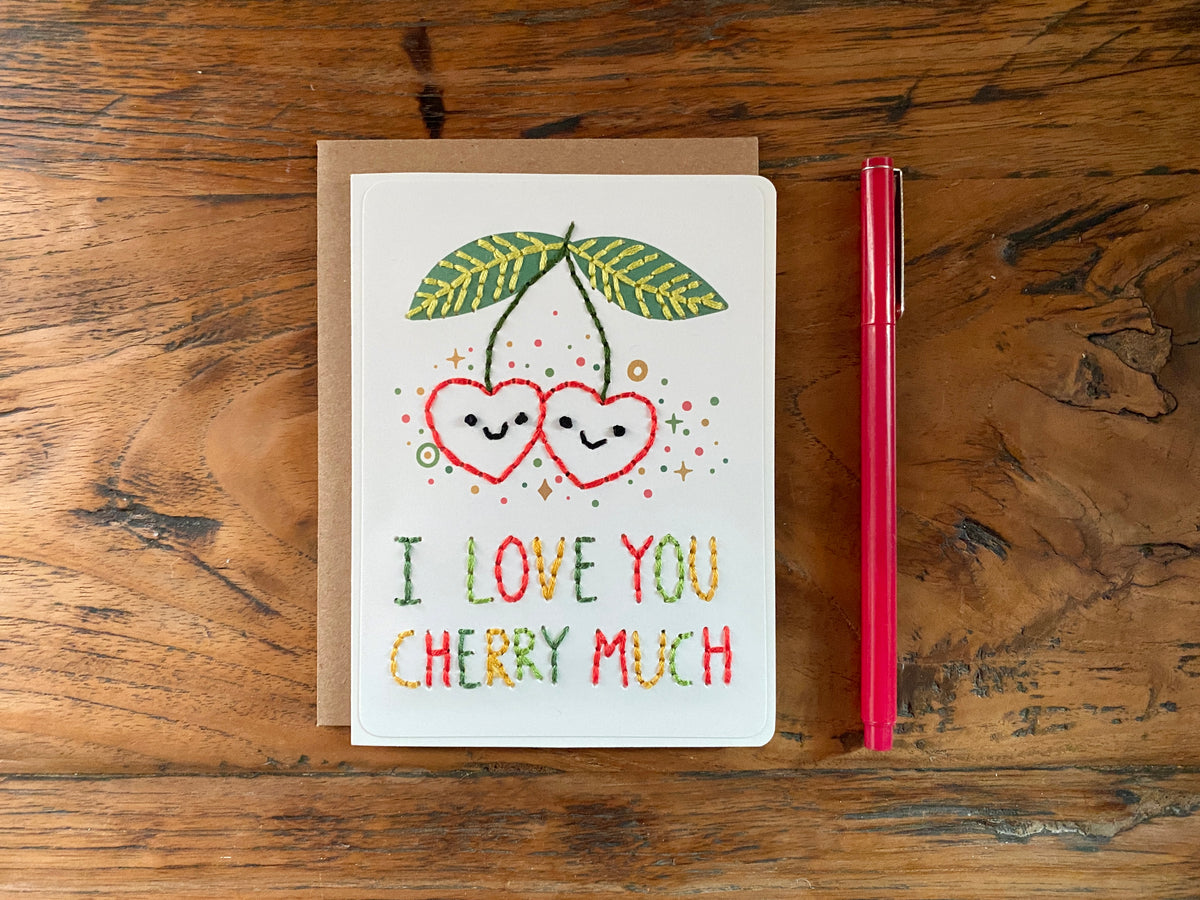 I LOVE YOU
CHERRY MUCH